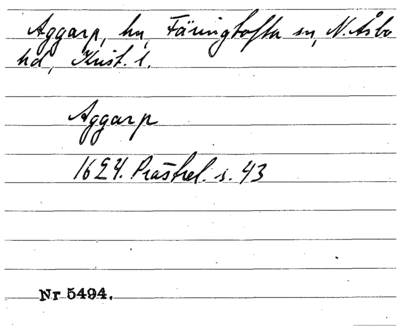 Aggarp, hn, Färingtofta sn, N. Åsbo
hd, Krist. l.
Aggarp
1624. Prästrel. s. 43
Nr 5494.